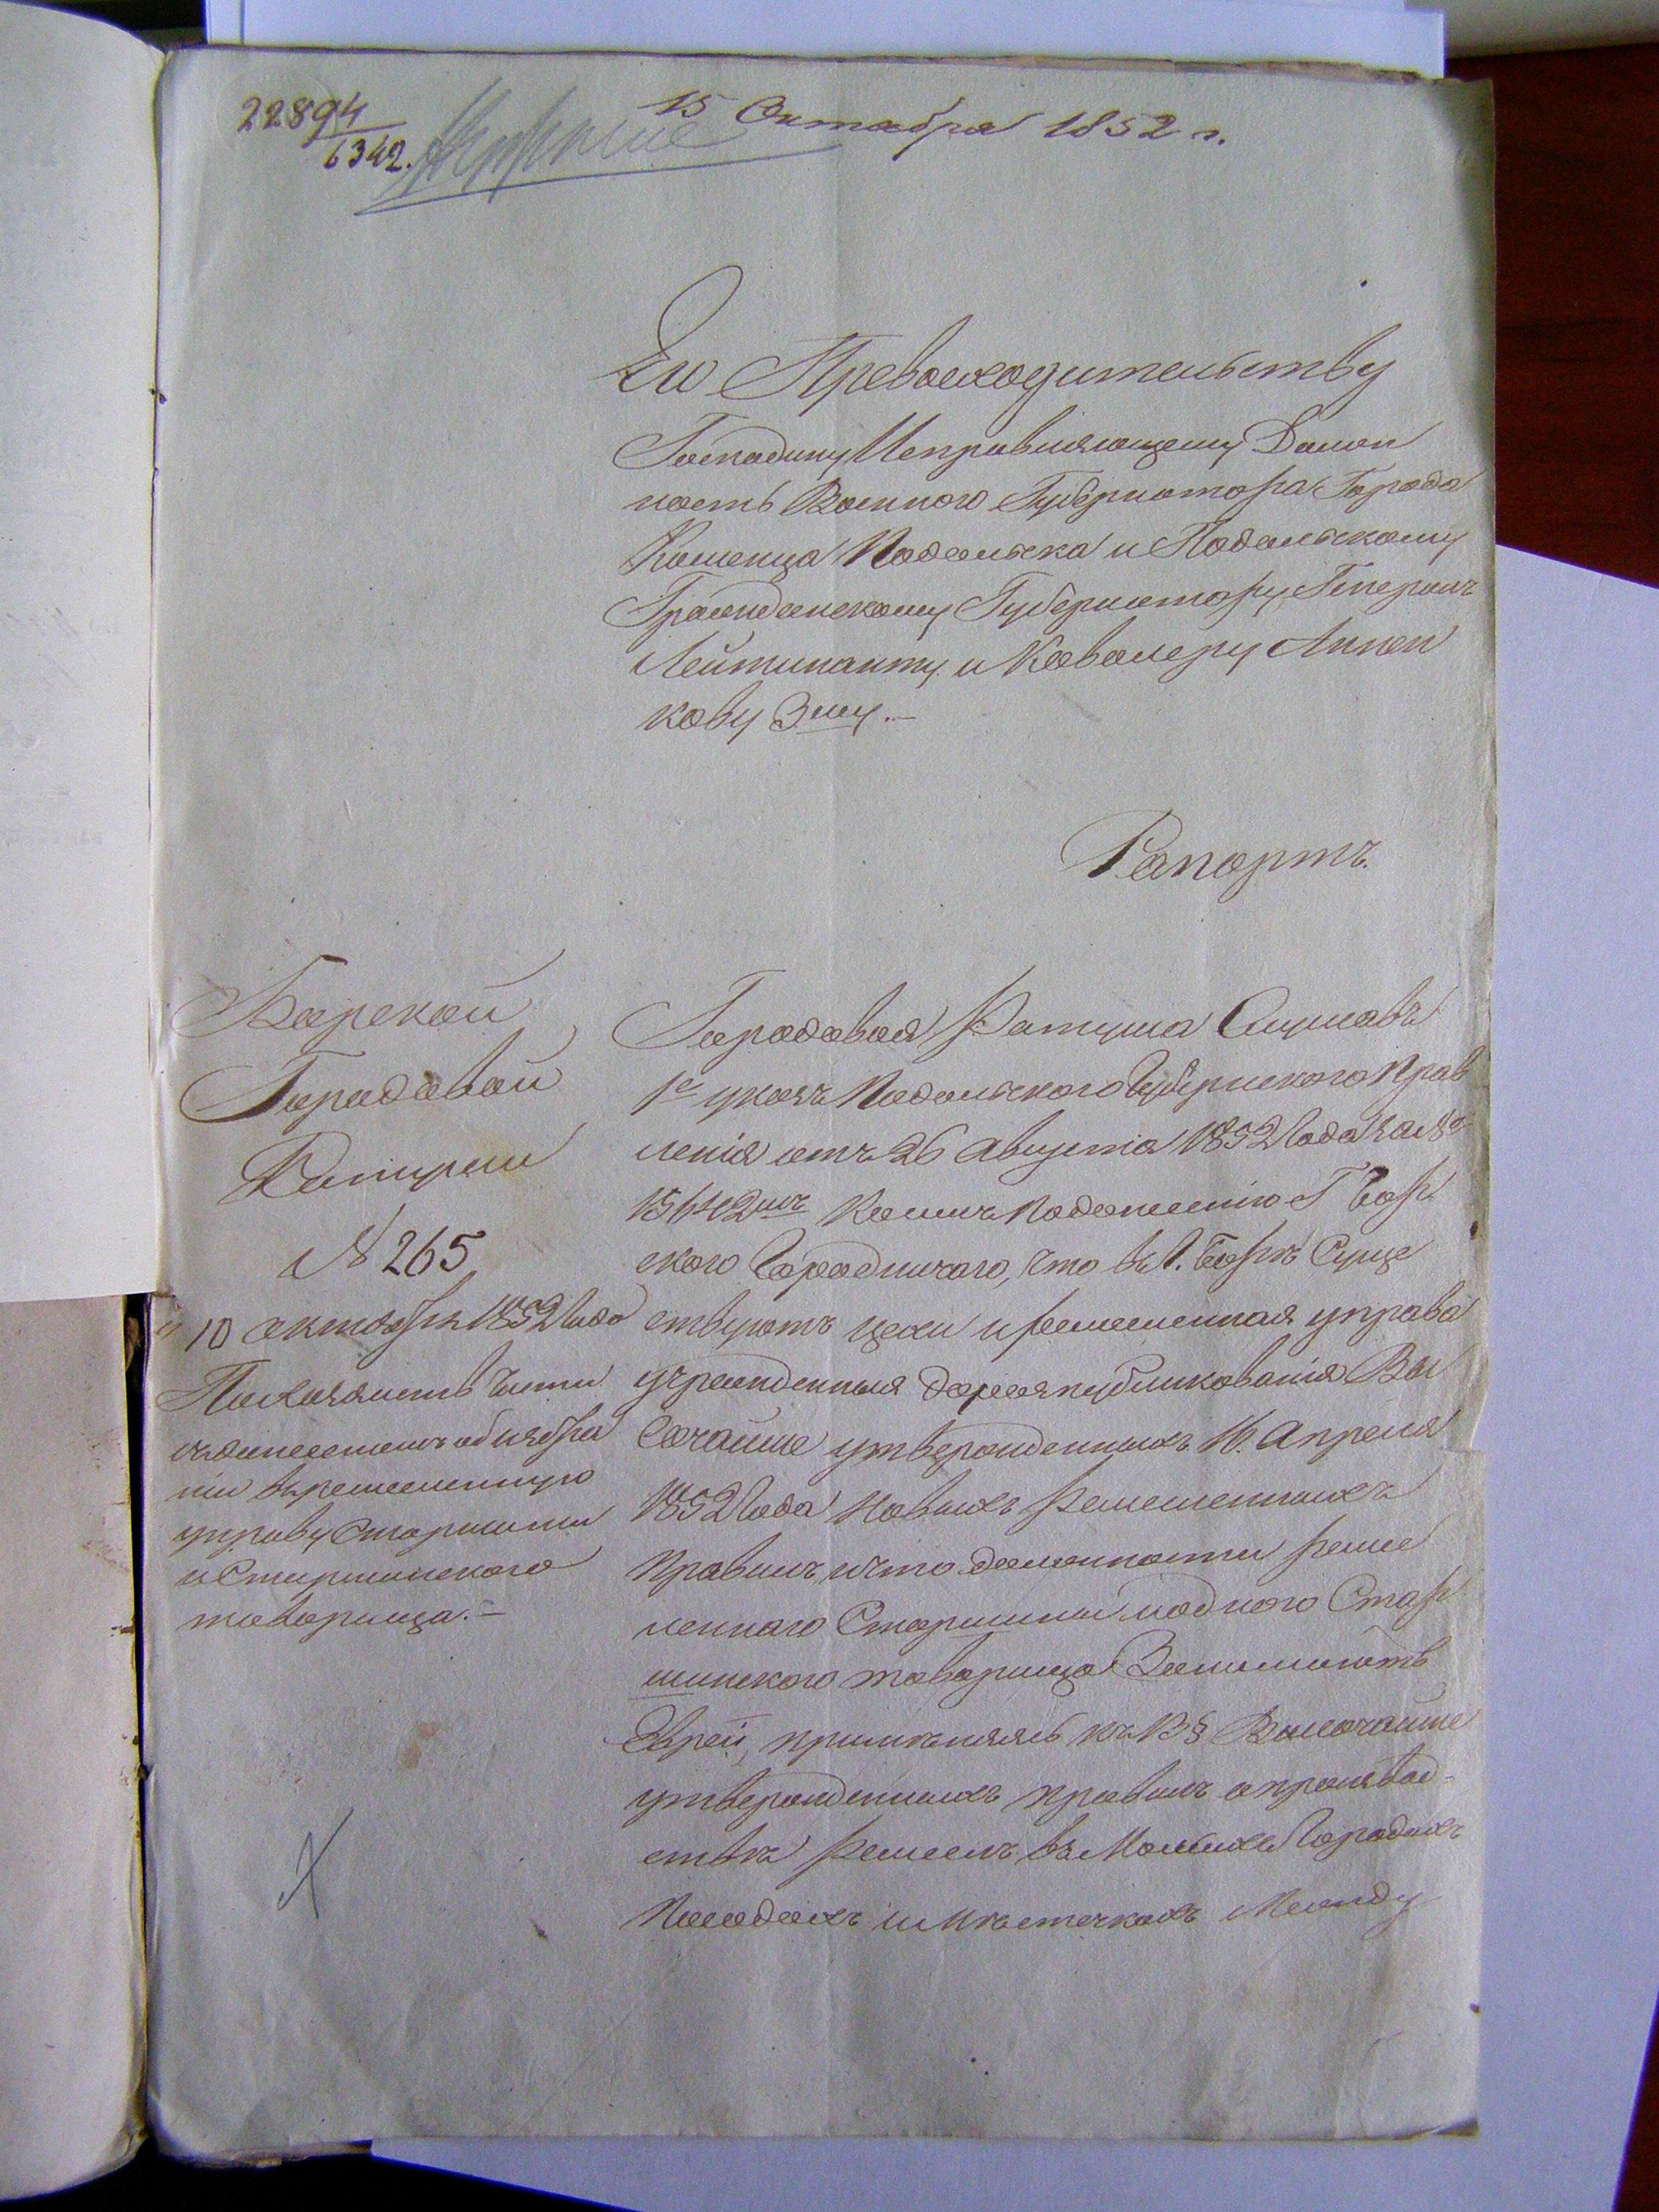 22894
6342.
15 Октабря 1852 г.
Его Превосходительству
Господину Исправляющему Должн
ность Военного Губернатора Города
Каменца Подольска и Подольскому
Гражданскому Губернатору Генералъ
Лейтинанту и Кавалеру Аннен
кову 3му.—
Рапортъ.
Барской
Городовой
Ратуши
№ 265
10 октября 1852 Года
съ донесениемъ об избра
ніи въ ремесленную
управу Старшины
и Старшинского
товарища.—
Городовая Ратуша Слушавъ
1е указъ Подольского Губернского Прав
ленія отъ 26 Августа 1852 Года за №
15642мъ Коимъ по донесенію Г Бар
ского Городничого, что въ Г. Баръ Суще
ствуютъ цехи и ремесленная управа
учрежденныя до распубликованія Вы
Сочайше утвержденныхъ 16. Апреля
1852 Года Новыхъ Ремесленныхъ
Правилъ, и что должности ремес
ленного Старшины и одного Стар
шинского товарища Занимаютъ
Евреи, применяясь къ 13 § Высочайше
утвержденныхъ правилъ о производ-
ствѣ Ремеслъ въ Малыхъ Городахъ
Посадахъ и Мѣстечкахъ Между